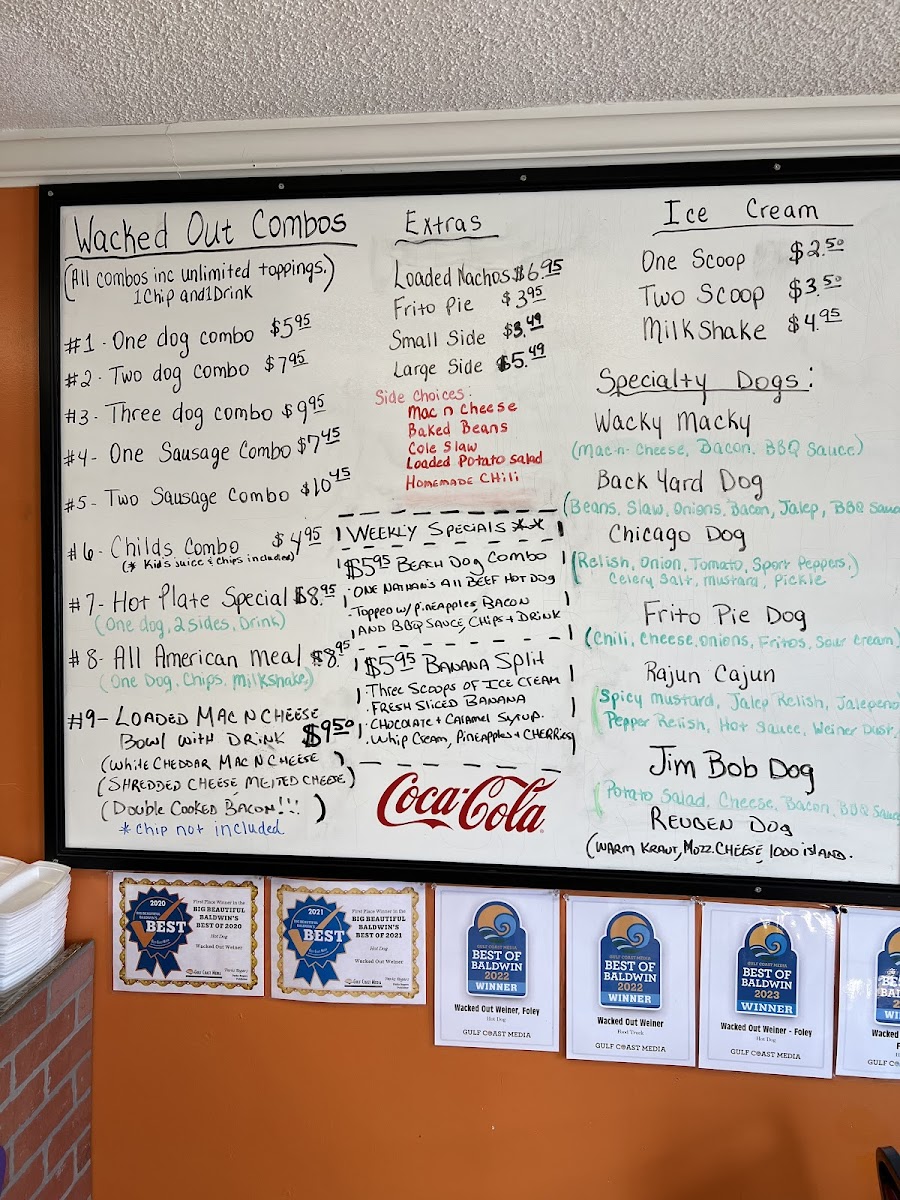 Wacked Out Combos
(All combos inc unlimited toppings.)
1 Chip and 1 Drink
#1 - One dog combo $5.95
#2 - Two dog combo $7.95
#3 - Three dog combo $9.95
#4 - One Sausage Combo $7.45
#5 - Two Sausage Combo $10.45
#6 - Childs Combo $4.95
(* Kids juice & chips included)
#7 - Hot Plate Special $8.95
(One dog, 2 sides, Drink)
#8 - All American Meal $8.95
(One Dog, Chips, Milkshake)
#9 - Loaded Mac N Cheese
Bowl with Drink $9.50
(White Cheddar Mac N Cheese)
(Shredded Cheese Melted Cheese)
(Double Cooked Bacon!!!)
* Chip not included
Extras
Loaded Nachos $6.95
Frito Pie $3.95
Small Side $3.49
Large Side $5.49
Side Choices:
Mac n Cheese
Baked Beans
Cole Slaw
Loaded Potato Salad
Homemade Chili
Weekly Specials **
$5.95 Beach Dog Combo
· One Nathan's All Beef Hot Dog
· Topped w/ Pineapples, Bacon
And BBQ Sauce, Chips + Drink
$5.95 Banana Split
· Three Scoops of Ice Cream
· Fresh Sliced Banana
· Chocolate + Caramel Syrup.
· Whip Cream, Pineapples + Cherries
Coca-Cola
Ice Cream
One Scoop $2.50
Two Scoop $3.50
Milkshake $4.95
Specialty Dogs:
Wacky Macky
(Mac-n-Cheese, Bacon, BBQ Sauce)
Back Yard Dog
(Beans, Slaw, Onions, Bacon, Jalep, BBQ Sauc
Chicago Dog
(Relish, Onion, Tomato, Sport Peppers,)
Celery Salt, Mustard, Pickle
Frito Pie Dog
(Chili, Cheese, Onions, Fritos, Sour Cream)
Rajun Cajun
Spicy Mustard, Jalep Relish, Jalepeno
Pepper Relish, Hot Sauce, Weiner Dust,
Jim Bob Dog
(Potato Salad, Cheese, Bacon, BBQ Sauc
Reuben Dog
(Warm Kraut, Mozz. Cheese, 1000 Island.
2020
BEST
First Place Winner in the
BIG BEAUTIFUL
BALDWIN'S
BEST OF 2020
Hot Dog
Wacked Out Weiner
GULF COAST MEDIA
2021
BEST
First Place Winner in the
BIG BEAUTIFUL
BALDWIN'S
BEST OF 2021
Hot Dog
Wacked Out Weiner
GULF COAST MEDIA
GULF COAST MEDIA
BEST OF
BALDWIN
2022
WINNER
Wacked Out Weiner, Foley
Hot Dog
GULF COAST MEDIA
GULF COAST MEDIA
BEST OF
BALDWIN
2022
WINNER
Wacked Out Weiner
Food Truck
GULF COAST MEDIA
GULF COAST MEDIA
BEST OF
BALDWIN
2023
WINNER
Wacked Out Weiner - Foley
Hot Dog
GULF COAST MEDIA
Wacked
GULF CO